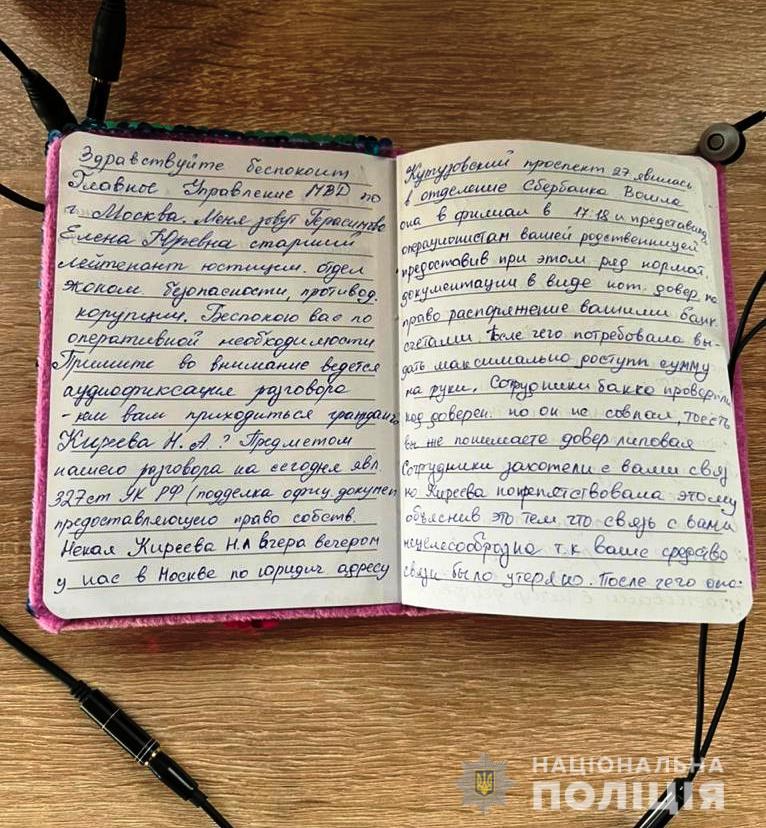 Здравствуйте беспокоит
Главное Управление МВД по
г. Москва. Меня зовут Герасимова
Елена Юрьевна старший
лейтенант юстиции. отдел
эконом. безопасности, противод.
корупции. Беспокою вас по
оперативной необходимости
Примите во внимание ведется
аудиофиксация разговора
- кем вам приходиться гражданка
Киреева Н. А? Предметом
нашего разговора на сегодня явл.
327 ст УК РФ (подделка офиц. докумен
предоставляющего право собств.
Некая Киреева Н.А вчера вечером
у нас в Москве по юридич адресу
Кутузовский проспект 27 явилась
в отделение Сбербанка Вошла
она в филиал в 17:18 и представила
операционистам вашей родственницей
предоставив при этом ряд нормат.
документации в виде нот. довер на
право распоряжение вашими банк.
счетами. После чего потребовала вы-
дать максимально доступн сумму
на руки. Сотрудники банка проверили
код доверен. но он не совпал, тоесть
вы же понимаете довер липовая
Сотрудники захотели с вами связ
но Киреева попрепятствовала этому
объяснив это тем, что связь с вами
нецелесообразна т.к ваше средство
связи было утеряно. После чего опо-
НАЦІОНАЛЬНА
ПОЛІЦІЯ